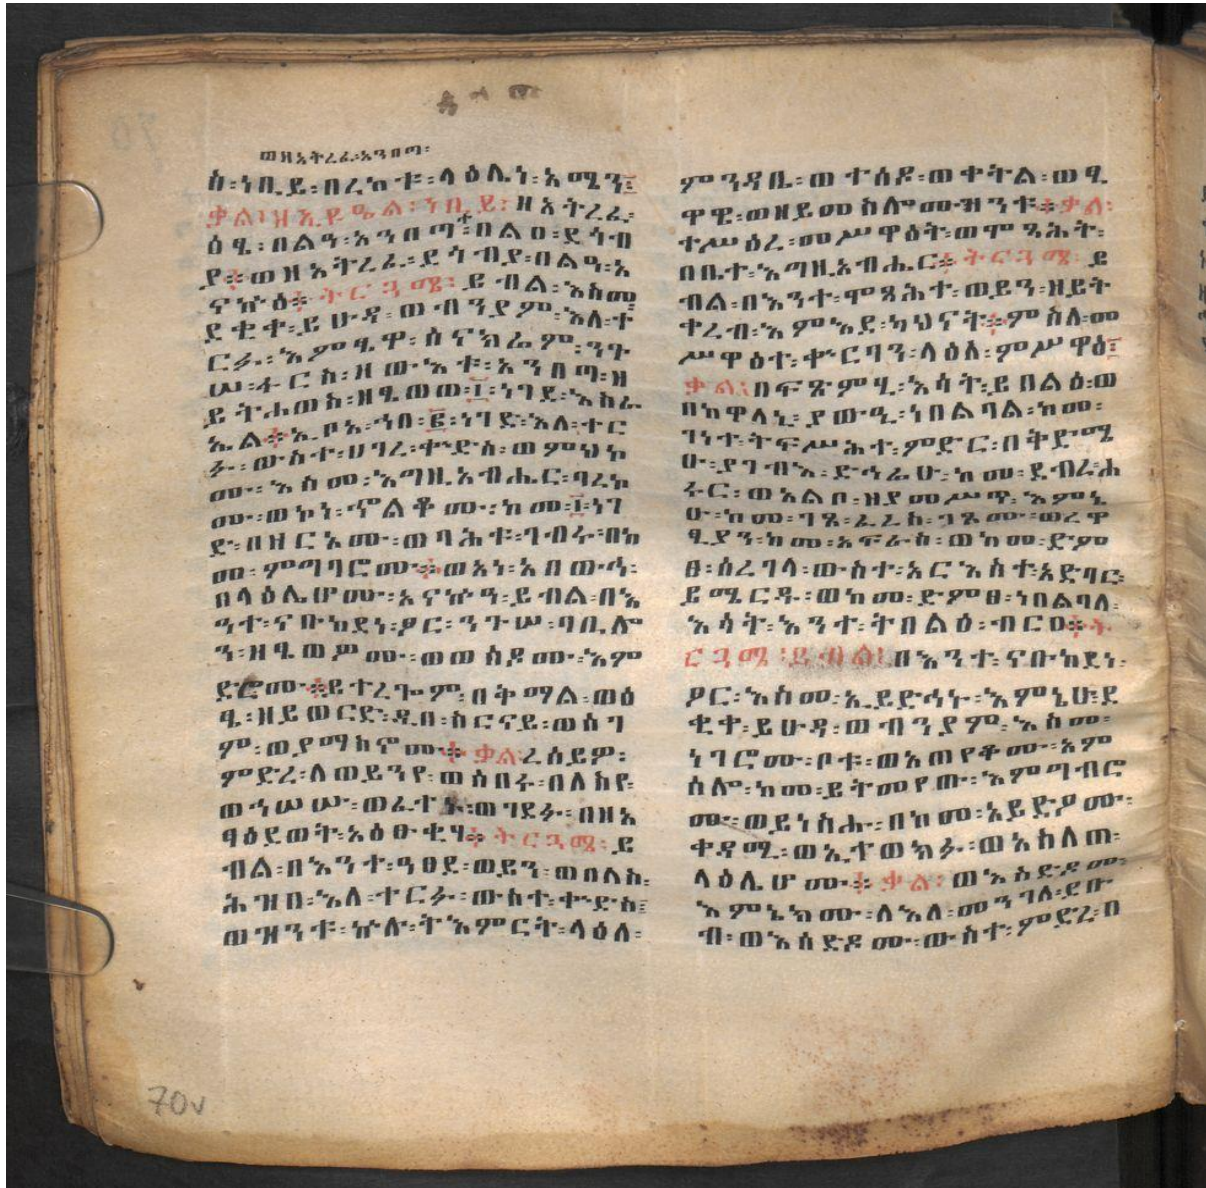 ወዘአትረፈ፡አንበጣ፡
ስ፡ነቢይ፡በረከቱ፡ላዕሌነ፡አሜን፤
ቃል፡ዘኢዩዔል፡ነቢይ፡ ዘአትረፈ፡
ዕፄ፡በልዓ፡አንበጣ፡በልዐ፡ደጎብ
ያ፨ወዘአትረፈ፡ደጎብያ፡በልዓ፡አ
ናኵዕ፨ትርጓሜ፡ይብል፡እስመ
ደቂቀ፡ይሁዳ፡ወብንያም፡እለ፡ተ
ርፉ፡እምፄዋ፡ሰናክሬም፡ንጉ
ሠ፡ፋርስ፡ዘውእቱ፡አንበጣ፡ዘ
ይትሐወስ፡ዘፄወወ፡፲፡ነገደ፡እስራ
ኤል፨ኢቦአ፡ኀበ፡፪፡ነገድ፡እለ፡ተር
ፉ፡ውስተ፡ሀገረ፡ቀድስ፡ወምህኮ
ሙ፡እስመ፡እግዚአብሔር፡ባረኮ
ሙ፡ወኮነ፡ኆልቆሙ፡ከመ፡፲፡ነገ
ድ፡በዘርአሙ፡ወባሕቱ፡ገብሩ፡በከ
መ፡ምግባሮሙ፨ወአነ፡አበውዓ፡
በላዕሌሆሙ፡አናኵዓ፡ይብል፡በእ
ንተ፡ናቡከደነ፡ፆር፡ንጉሠ፡ባቢሎ
ን፡ዘፄወሥሙ፡ወወሰዶሙ፡እም
ድሮሙ፨ይተረጐም፡በቅማል፡ወዕ
ፄ፡ዘይወርድ፡ዲበ፡ስርናይ፡ወሰገ
ም፡ወያማስኖሙ፨ቃል፡ረሰይዎ፡
ምድረ፡ለወይንየ፡ወሰበሩ፡በለስየ፡
ወኀሠሡ፡ወፈተኑ፡ወገደፉ፡በዘአ
ፃዕደወት፡አዕፁቂሃ፨ትርጓሜ፡ይ
ብል፡በእንተ፡ዓፀደ፡ወይን፡ወበለስ፡
ሕዝበ፡እለ፡ተርፉ፡ውስተ፡ቀድስ፤
ወዝንቱ፡ኵሉ፡ትእምርት፡ላዕለ፡
ምንዳቤ፡ወተሰዶ፡ወቀትል፡ወፄ
ዋዊ፡ወዘይመስሎሙ፡ዝንቱ፨ቃል፡
ተሥዕረ፡መሥዋዕት፡ወሞጻሕት፡
በቤተ፡እግዚአብሔር፨ትርጓሜ፡ይ
ብል፡በእንተ፡ሞጻሕተ፡ወይን፡ዘይት
ቀረብ፡እምእደ፡ካህናት፨ምስለ፡መ
ሥዋዕተ፡ቍርባን፡ላዕለ፡ምሥዋዕ፤
ቃል፤በፍጽምፂ፡እሳት፡ይበልዕ፡ወ
በከዋላኒ፡ያውዒ፡ነበልባል፡ከመ፡
ገነተ፡ትፍሥሕተ፡ምድር፡በቅድሜ
ሁ፡ያገብእ፡ድኅሬሁ፡ከመ፡ደብረ፡ሐ
ሩር፡ወአልቦ፡ዘያመሥጥ፡እምኔ
ሁ፡ከመ፡ገጸ፡ፈረስ፡ገጾሙ፡ወረዋ
ፂያን፡ከመ፡አፍራስ፡ወከመ፡ድም
ፀ፡ሰረገላ፡ውስተ፡አርእስተ፡አድባር፡
ይሜርዱ፡ወከመ፡ድምፀ፡ነበልባለ፡
እሳት፡እንተ፡ትበልዕ፡ብርዐ፨ት
ርጓሜ፡ይብል፤በእንተ፡ናቡከደነ፡
ፆር፡እስመ፡ኢይድኅኑ፡እምኔሁ፡ደ
ቂቀ፡ይሁዳ፡ወብንያም፡እስመ፡
ነገሮሙ፡ቦቱ፡ወአጠየቆሙ፡አም
ሰሎ፡ከመ፡ይትመየጡ፡እምግብሮ
ሙ፡ወይነስሑ፡በከመ፡አይድዖሙ፡
ቀዳሚ፡ወኢተወክፉ፡ወአከለጠ፡
ላዕሌሆሙ፨ቃል፡ወእሰድዶሙ፡
እምኔክሙ፡ለእለ፡መንገለ፡ደቡ
ብ፡ወእሰድዶሙ፡ውስተ፡ምድረ፡በ
70v